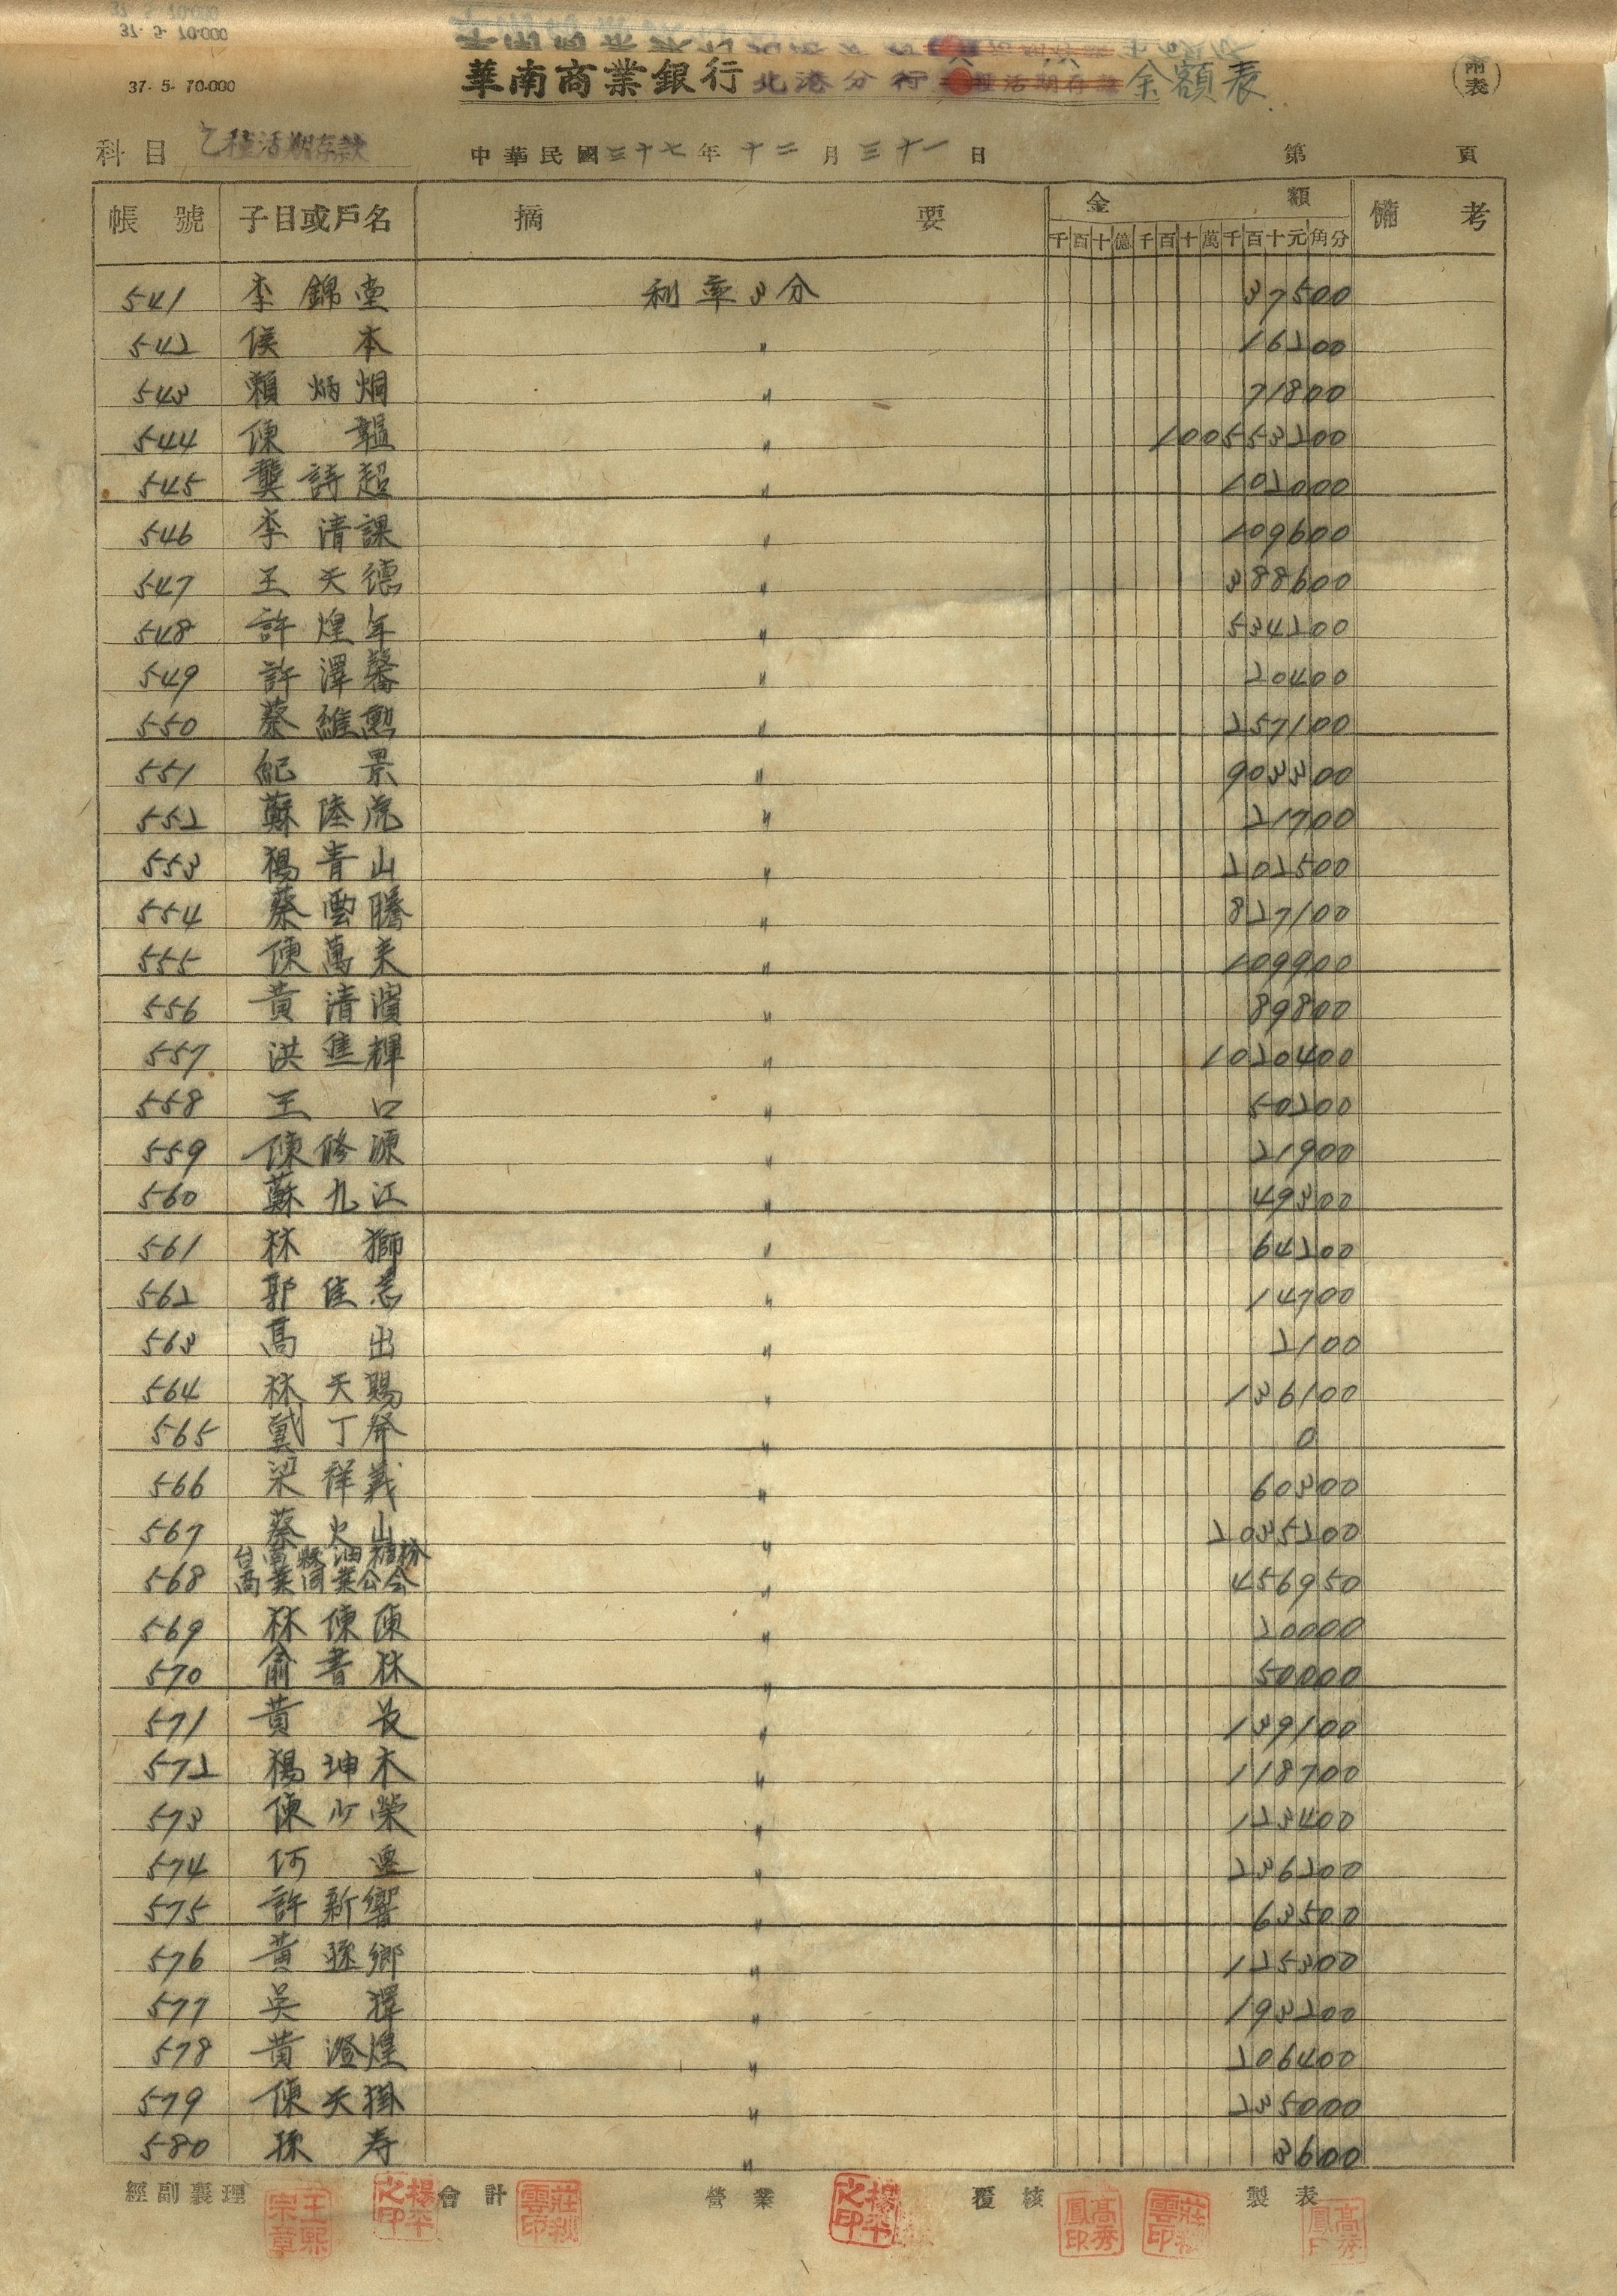 37-5-70.000
華南商業銀行北港分行 余額表
(附表)
科目 乙種活期存款 中華民國三十七年十二月三十一日 第 頁
帳號 子目或戶名 摘要 金額 備考
千百十億千百十萬千百十元角分
541 李錦堂 利率3分 37500
542 侯本 〃 16200
543 賴炳烟 〃 71800
544 陳 〃 100553200
545 龔詩超 〃 102000
546 李清課 〃 109600
547 王天德 〃 388600
548 許煌年 〃 534200
549 許澤馨 〃 20400
550 蔡維勲 〃 257100
551 紀景 〃 903300
552 蘇陸虎 〃 21700
553 楊青山 〃 202500
554 蔡雲騰 〃 827100
555 陳萬来 〃 109900
556 黃清濱 〃 89800
557 洪進輝 〃 1020400
558 王口 〃 50200
559 陳修源 〃 21900
560 蘇九江 〃 49300
561 林獅 〃 64200
562 郭佳忠 〃 14700
563 高出 〃 2100
564 林天賜 〃 136100
565 戴丁 〃 0
566 梁祥義 〃 60300
567 蔡火山 〃 2035200
568 商業同業公会 〃 456950
569 林陳陳 〃 20000
570 俞書林 〃 50000
571 黃長 〃 139100
572 楊坤木 〃 118700
573 陳少榮 〃 123400
574 何邊 〃 236200
575 許新響 〃 63500
576 黃孫鄉 〃 125300
577 吳擇 〃 193200
578 黃澄煌 〃 206400
579 陳天掛 〃 235000
580 孫寿 〃 3600
經副襄理 會計 營業 覆核 製表
王熙宗章 楊平之印 莊秋雲印 楊平之印 高秀鳳印 莊秋雲印 高秀鳳印